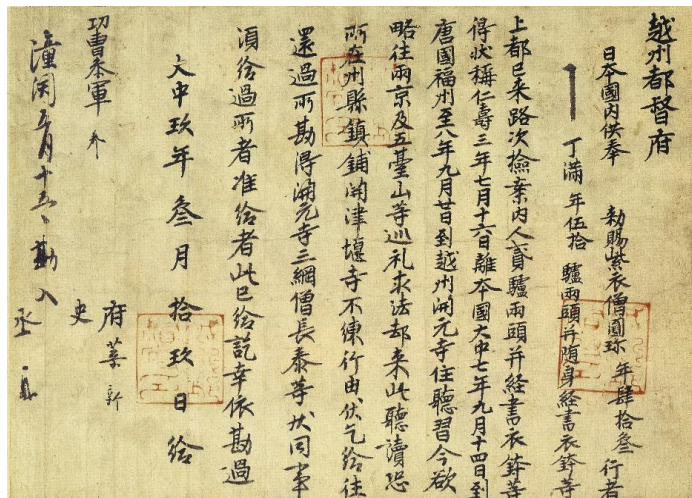 越州都督府
日本國內供奉 勑賜紫衣僧圓珍 年肆拾叁 行者
丁滿 年伍拾 驢兩頭并隨身經書衣鉢等
上都已來路次撿案內人貳驢兩頭并經書衣鉢等
得狀稱仁壽三年七月十六日離本國大中七年九月十四日到
唐國福州至八年九月廿日到越州開元寺住聽習今欲
略往兩京及五臺山等巡礼求法却来此聽讀恐
所在州縣鎮鋪關津堰寺不練行由伏乞給往
還過所勘得開元寺三綱僧長泰等狀同事
須給過所者准給者此已給訖幸依勘過
大中玖年叁月拾玖日給
府葉新
功曹参軍
史
潼關五月十五日勘入
丞